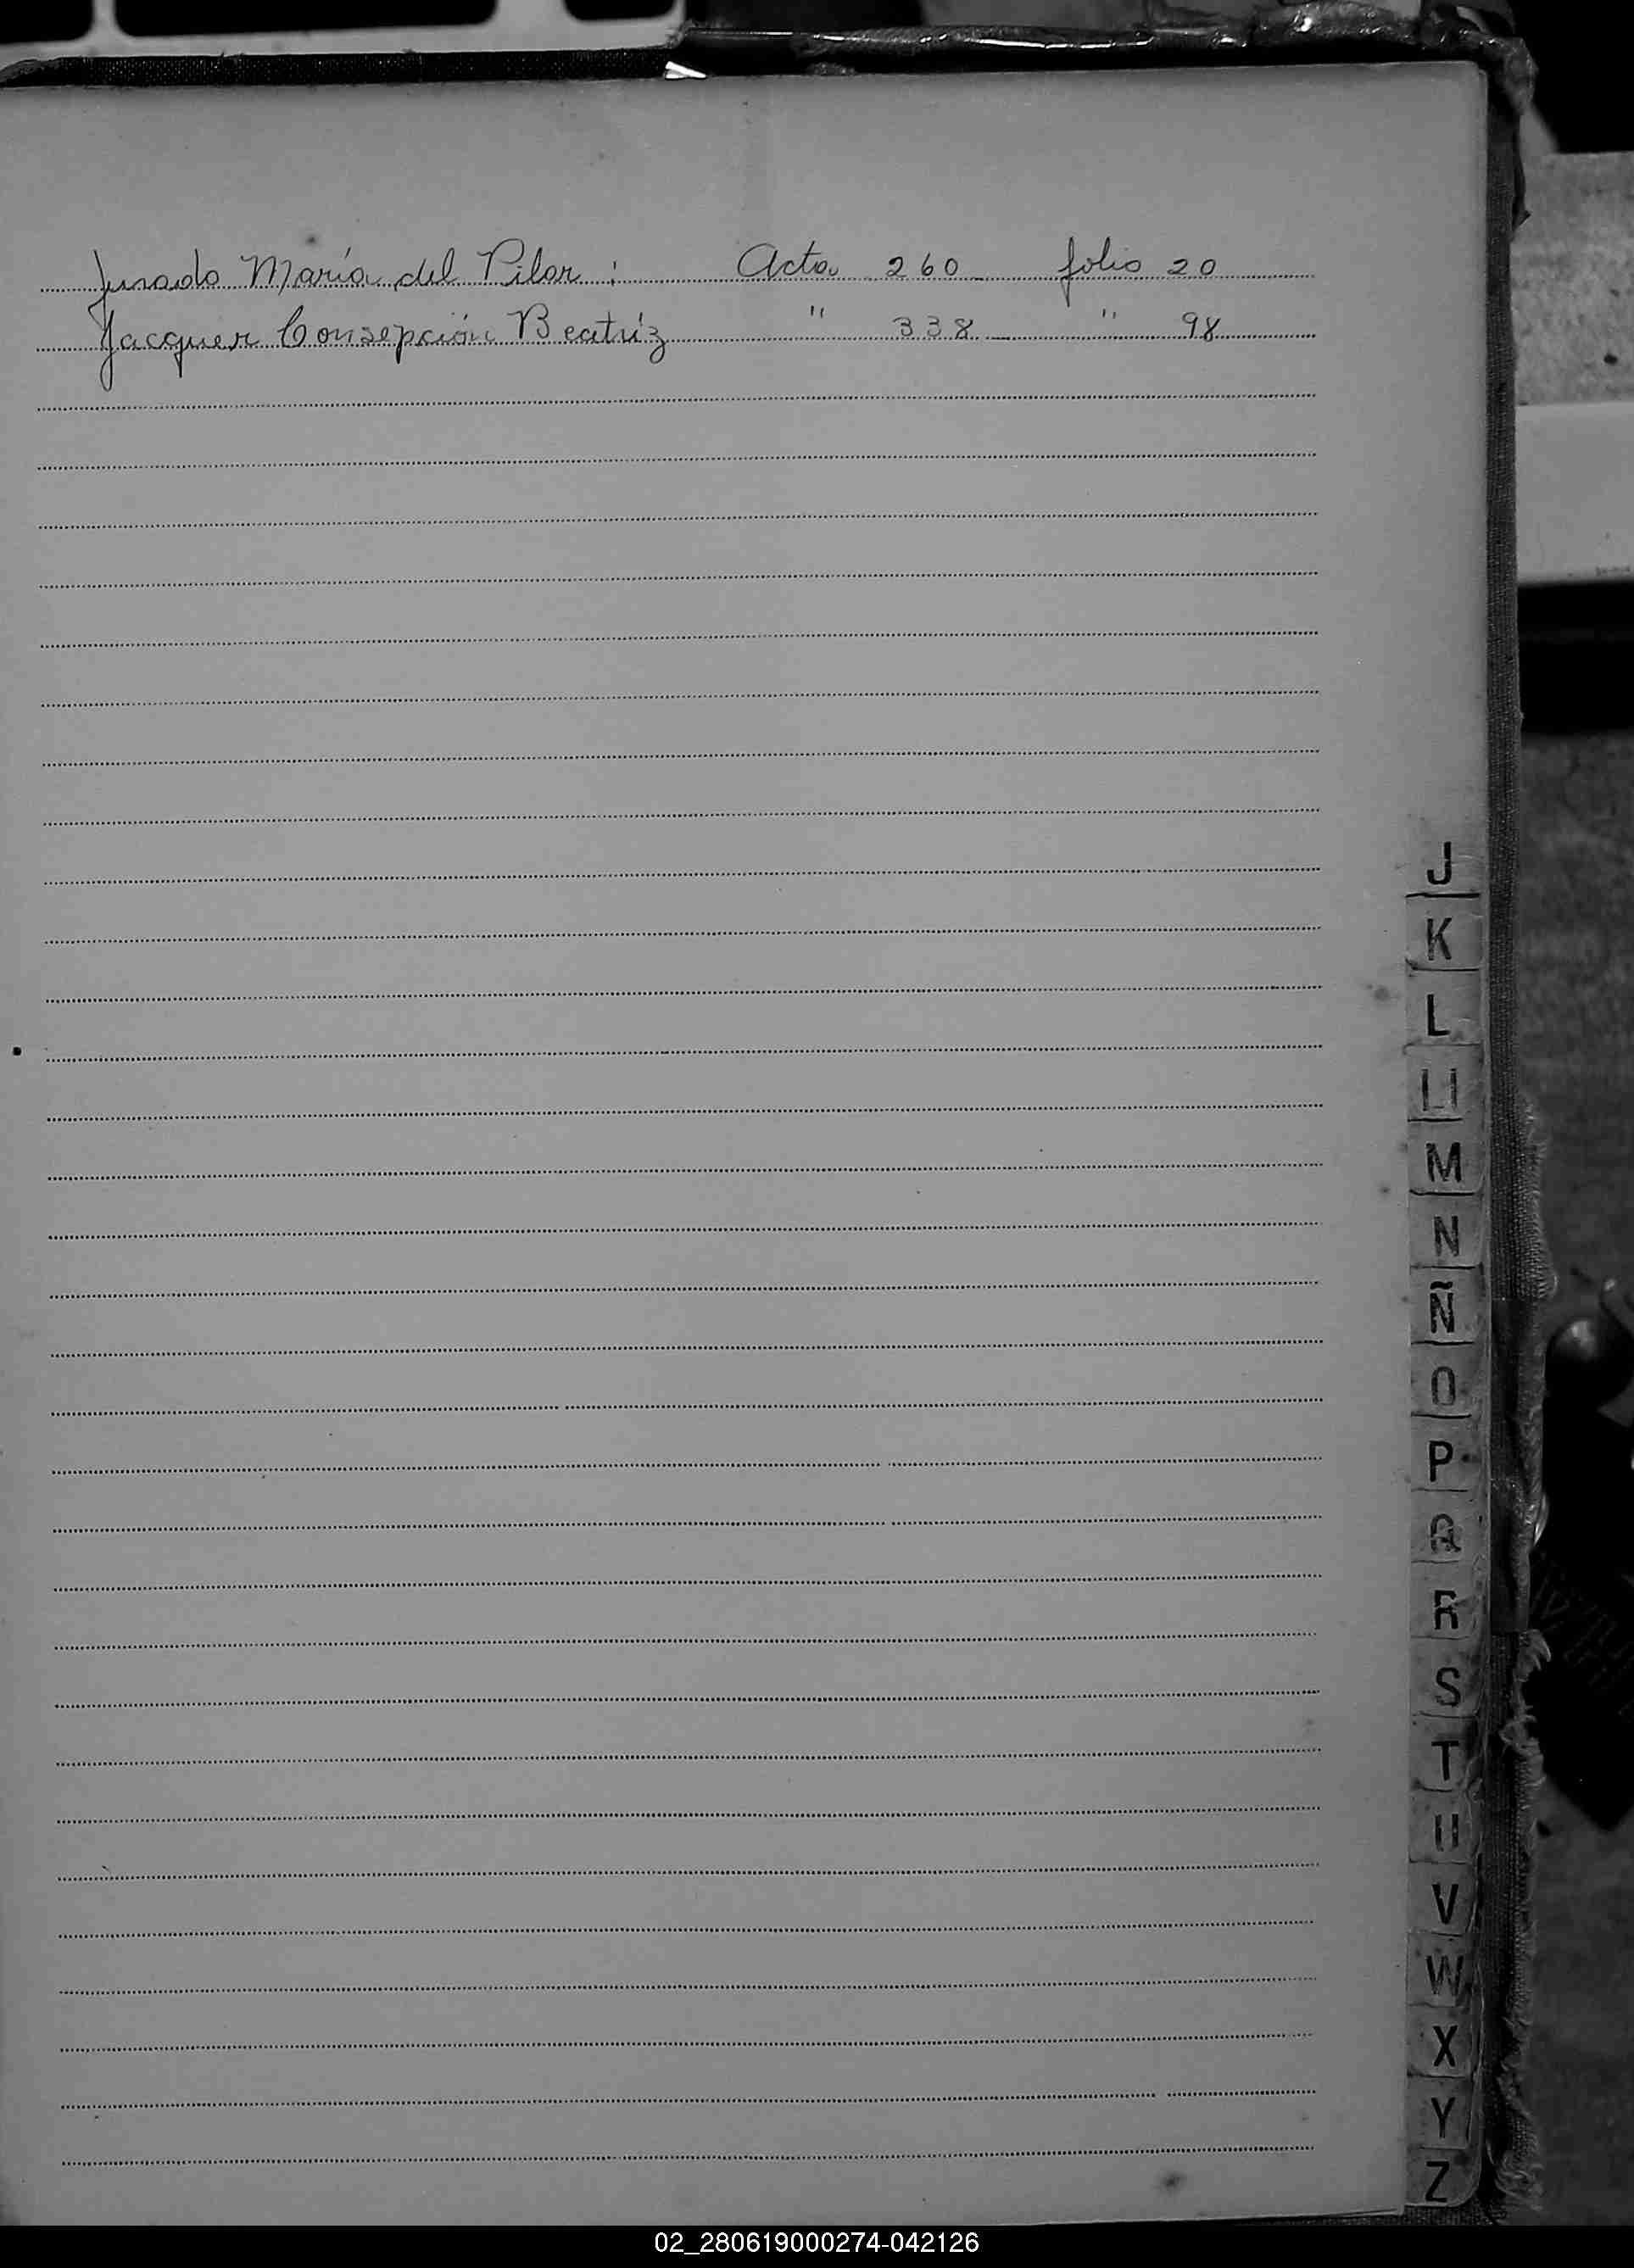 Jurado María del Pilar : Acta 260 folio 20
Jacquer Consepción Beatríz " 338 " 98
J
K
L
Ll
M
N
Ñ
O
P
Q
R
S
T
U
V
W
X
Y
Z
02_280619000274-042126